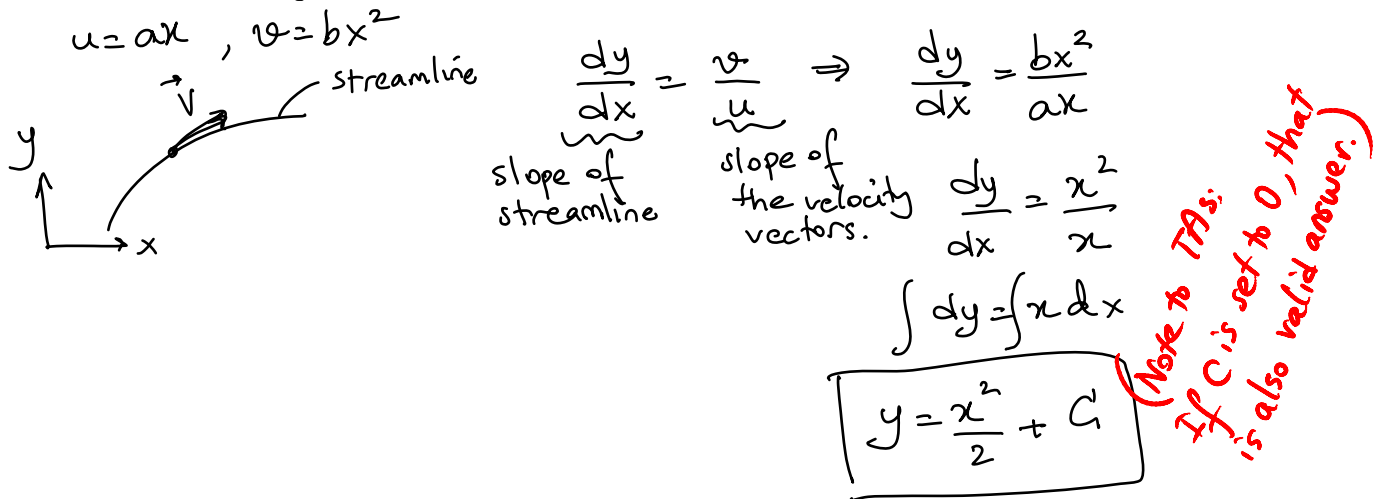 u = ax , v = bx²
V⃗
streamline
y
x
dy/dx = v/u ⇒ dy/dx = bx²/ax
slope of
streamline
slope of
the velocity
vectors.
dy/dx = x²/x
∫ dy = ∫ x dx
y = x²/2 + C
(Note to TAs:
If C is set to 0, that
is also valid answer.)